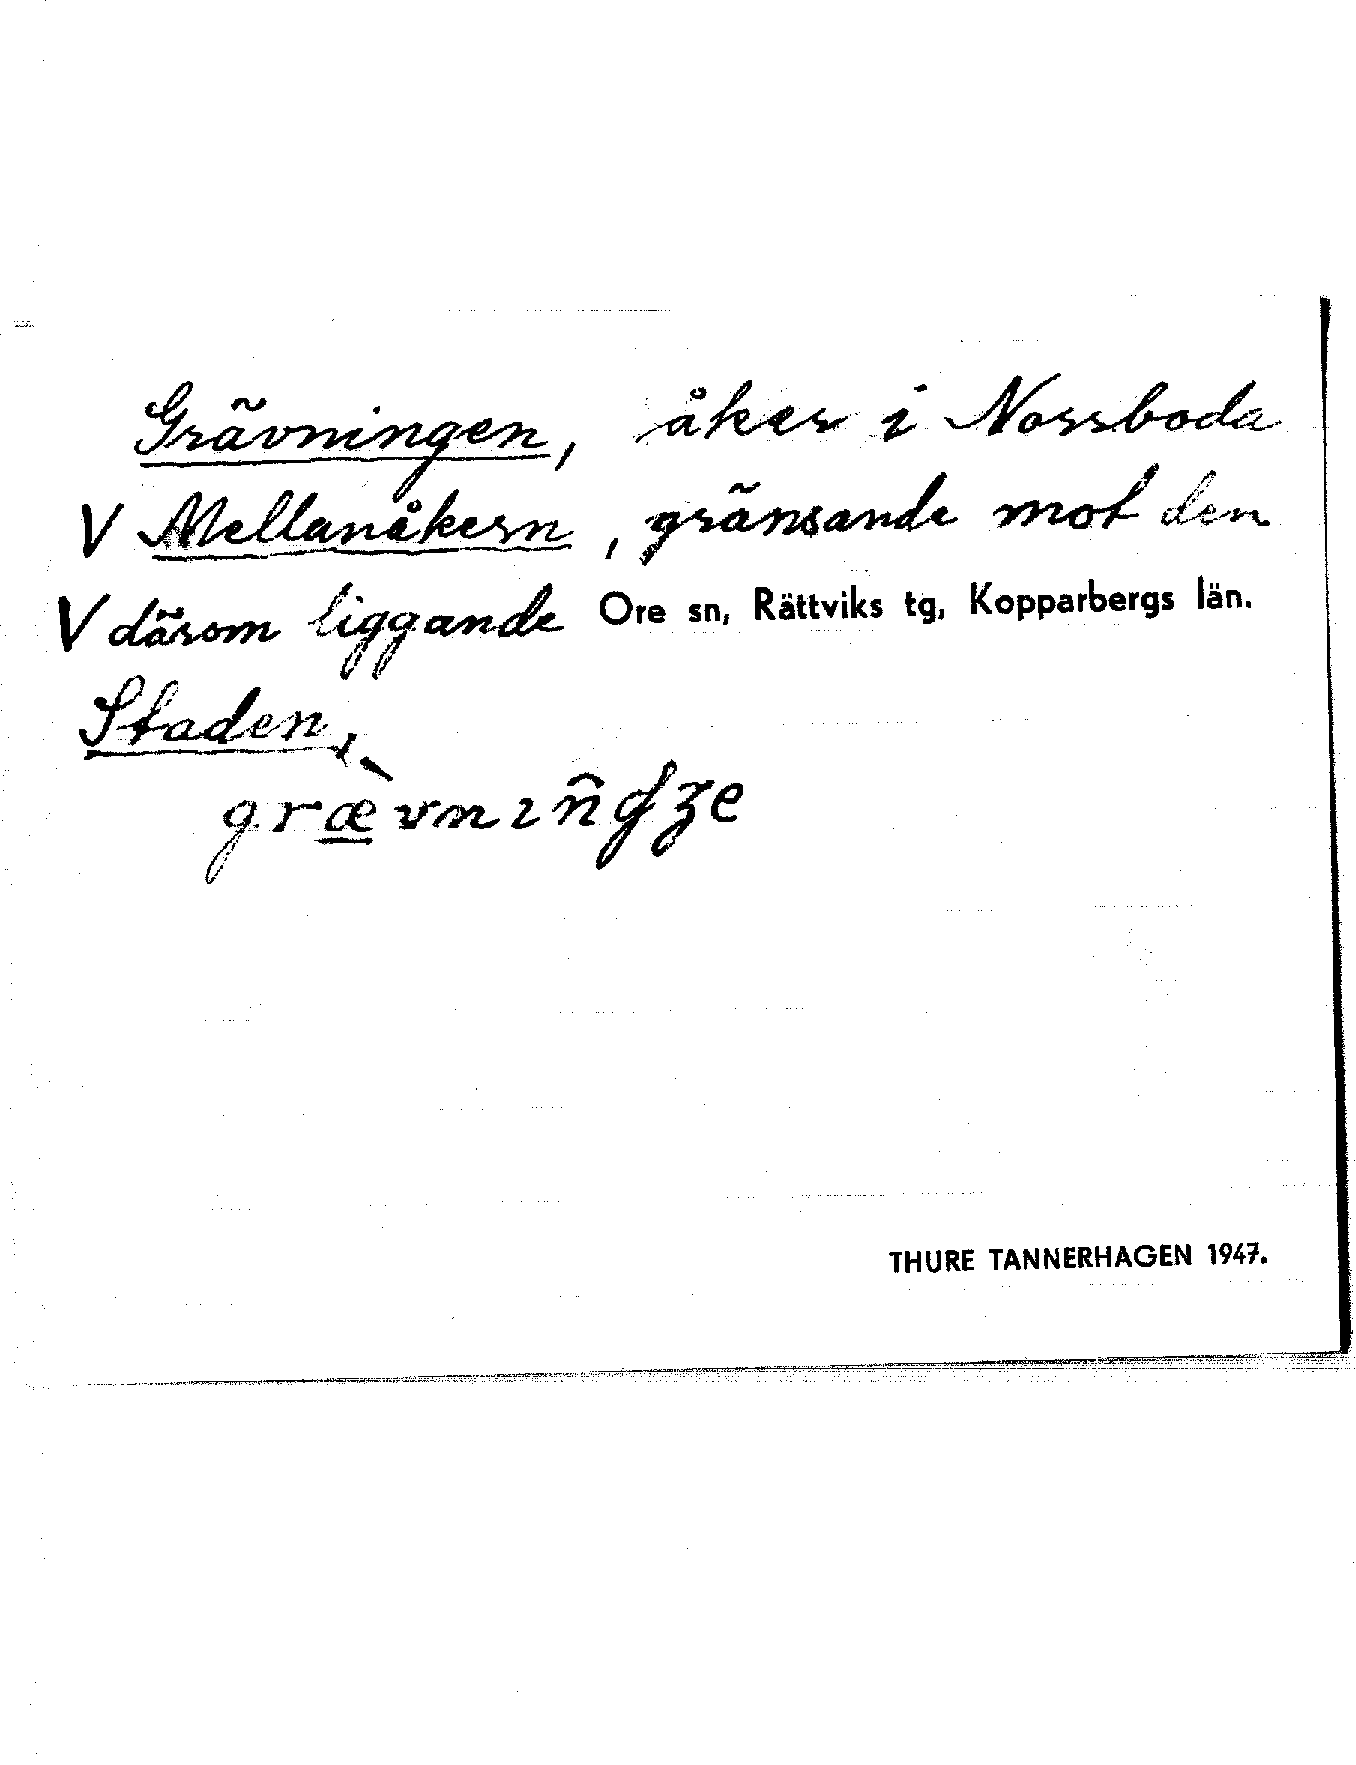 Grävningen, åker i Norrboda
V Mellanåkern, gränsande mot den
V därom liggande Ore sn, Rättviks tg, Kopparbergs län.
Staden.
græ̀vnın̂ʤe
THURE TANNERHAGEN 1947.